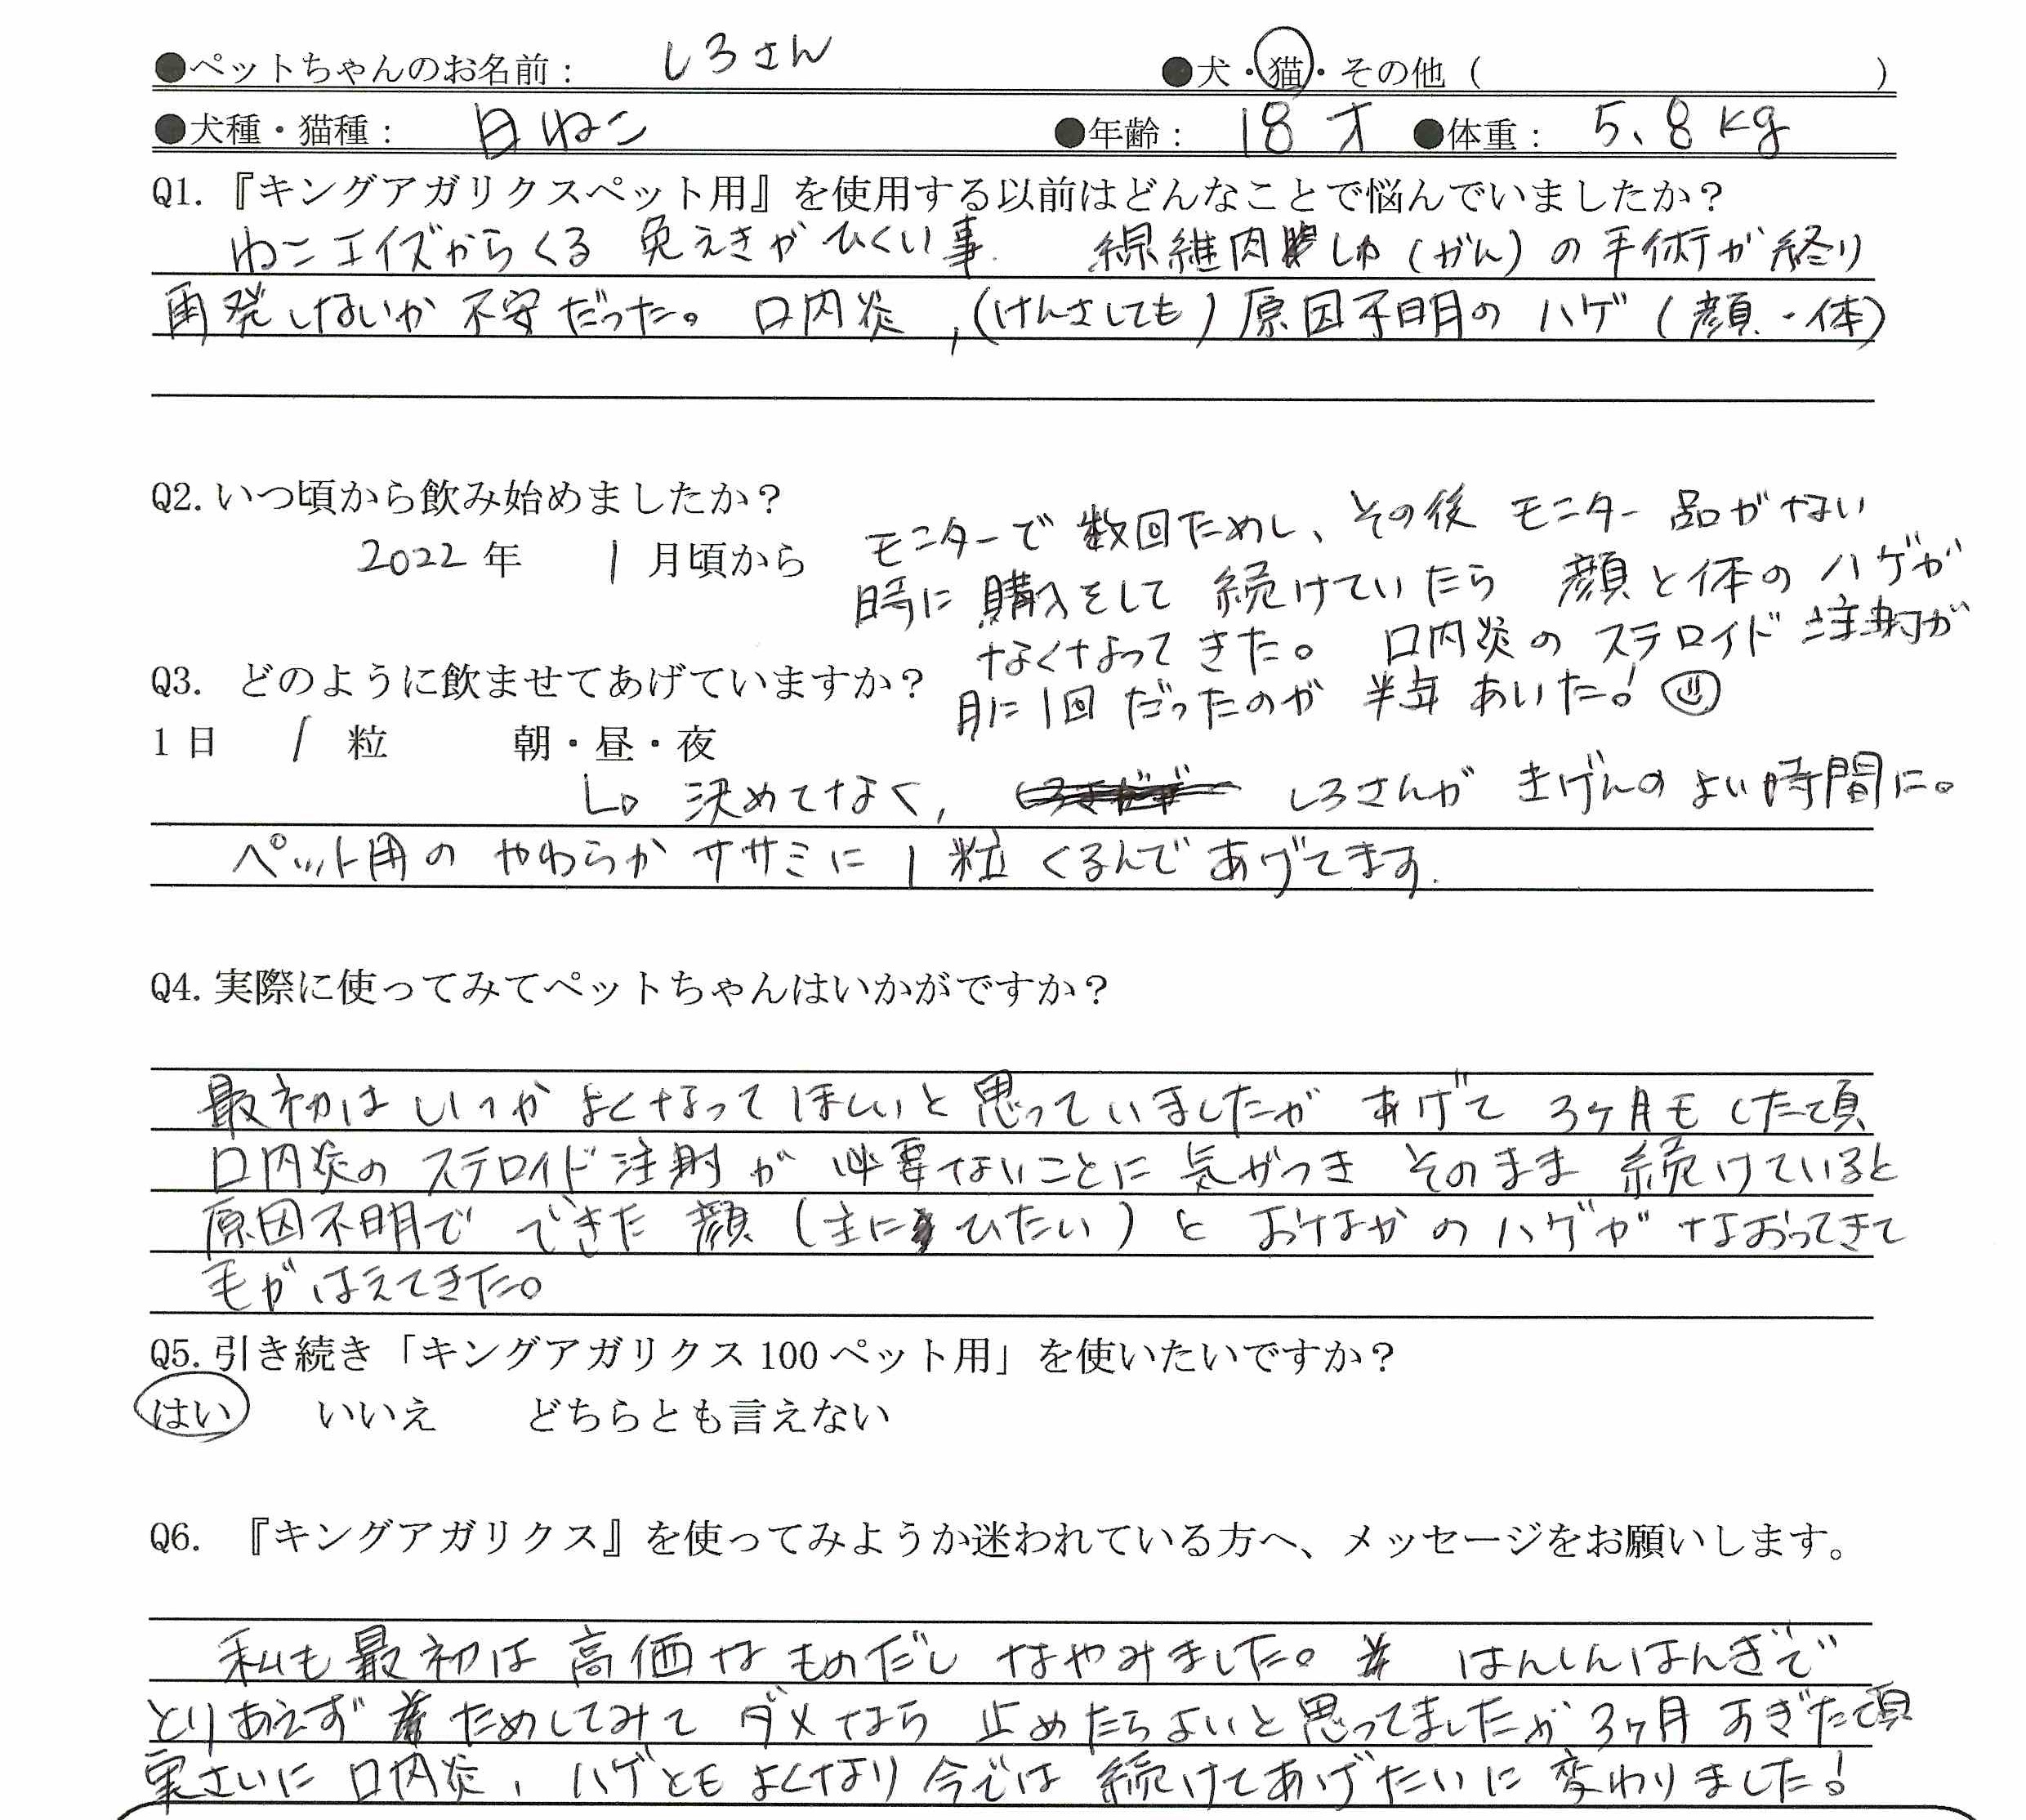 ●ペットちゃんのお名前： しろさん ●犬・猫・その他（ ）
●犬種・猫種： 白ねこ ●年齢： 18才 ●体重： 5.8kg
Q1.『キングアガリクスペット用』を使用する以前はどんなことで悩んでいましたか？
ねこエイズからくる 免えきがひくい事. 線維肉しゅ（がん）の手術が終り
再発しないか不安だった。口内炎,（けんさしても）原因不明のハゲ（顔・体）
Q2.いつ頃から飲み始めましたか？
2022年 1月頃から
モニターで数回ためし、その後 モニター品がない
時に購入をして 続けていたら 顔と体のハゲが
なくなってきた。口内炎のステロイド注射が
月に1回だったのが 半年あいた!
Q3. どのように飲ませてあげていますか？
1日 1 粒 朝・昼・夜
決めてなく, しろさんが きげんのよい時間に。
ペット用の やわらかササミに 1粒 くるんであげてます.
Q4.実際に使ってみてペットちゃんはいかがですか？
最初は いつか よくなって ほしいと思っていましたが あげて 3ヶ月もした頃
口内炎のステロイド注射が 必要ないことに気がつき そのまま 続けていると
原因不明で できた 顔（主にひたい）と おなかのハゲが なおってきて
毛がはえてきた。
Q5.引き続き「キングアガリクス100ペット用」を使いたいですか？
はい いいえ どちらとも言えない
Q6. 『キングアガリクス』を使ってみようか迷われている方へ、メッセージをお願いします。
私も最初は 高価なものだし なやみました。 はんしんはんぎで
とりあえず ためしてみて ダメなら 止めたらよいと思ってましたが 3ヶ月 すぎた頃
実さいに 口内炎, ハゲともよくなり 今では 続けてあげたいに 変わりました!